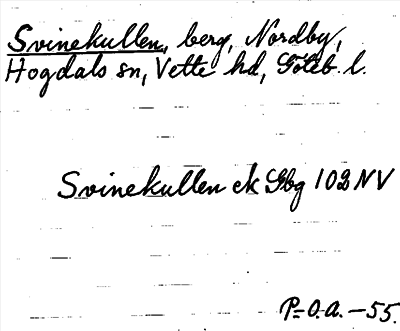 Svinekullen, berg, Nordby,
Hogdals sn, Vette hd, Göteb. l.
Svinekullen ek Gbg 102 NV
P=O.A. -55.